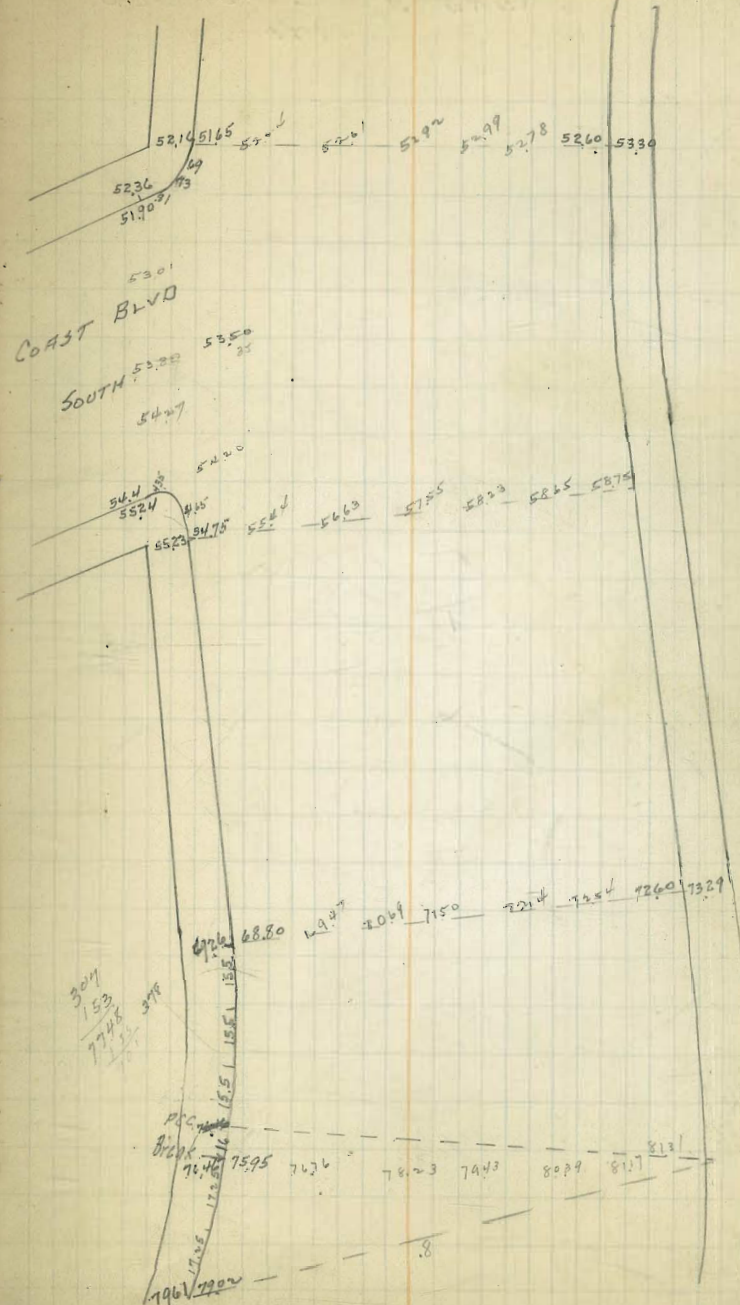 52.16 51.65 52.61 52.92 52.99 52.78 52.60 53.30
69
73
52.36
51.90 71
53.01
COAST BLVD
53.50
35
SOUTH 53.80
54.27
54.20
54.4
55.24 4.65
55.23 54.75 55.44 56.63 57.55 58.23 58.65 58.75
69.26 68.80 69.97 70.69 71.50 72.14 72.54 72.60 73.29
15.5
307
153
7748
378
15.5
15.5
PCC
Break
76.46 75.95 76.76 78.23 79.43 80.39 81.17 81.31
17.25
17.25
.8
79.61 79.02